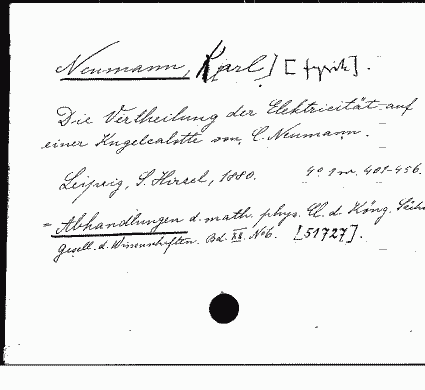 Neumann, Karl] [fysik].
Die Vertheilung der Elektricität auf
einer Kugelcalotte von C. Neumann.
Leipzig, S. Hirzel, 1880. 4° 401-456.
= Abhandlungen d. math. phys. Cl. d. Köng. Sächs.
Gesell. d. Wissenschaften. Bd. XII. No 6. [51727].